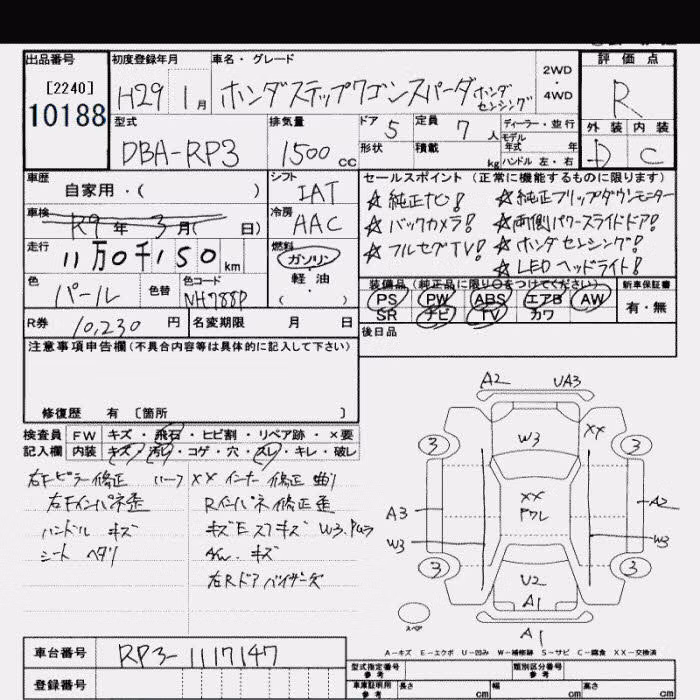 出品番号
[2240]
10188
初度登録年月
H29 1月
車名・グレード
ホンダステップワゴンスパーダ ホンダセンシング
2WD
・
4WD
評価点
R
型式
DBA-RP3
排気量
1500 cc
ドア 5
形状
定員 7 人
積載 kg
ディーラー・並行
モデル年式 年
ハンドル 左・右
外装 内装
D C
車歴
自家用・( )
シフト
IAT
セールスポイント (正常に機能するものに限ります)
☆純正ナビ! ☆純正フリップダウンモニター
☆バックカメラ! ☆両側パワースライドドア!
☆フルセグTV! ☆ホンダセンシング!
☆LEDヘッドライト!
車検
R9年3月( 日)
冷房
AAC
走行
11万0千150km
燃料
ガソリン
・
軽油
・
( )
色
パール
色替
色コード
NH788P
装備品 (純正品に限り○をつけてください)
PS PW ABS エアB AW
SR ナビ TV カワ
新車保証書
有・無
R券 10,230円
名変期限 月 日
後日品
注意事項申告欄 (不具合内容等は具体的に記入して下さい)
修復歴 有 〔箇所 〕
検査員 FW キズ・飛石・ヒビ割・リペア跡・×要
記入欄 内装 キズ・汚レ・コゲ・穴・スレ・キレ・破レ
右Fピラー修正 ルーフXX インナー修正 曲り
右Fインパネ歪 Rインパネ修正歪
ハンドル キズ キズEスフキズ W3.
シート ヘタリ AW. キズ
右Rドアバイザーキズ
A2 UA3
3 W3 XX 3
A3 XX A2
W3 W3
3 U2 3
A1
スペア
A1
A-キズ E-エクボ U-凹み W-補修跡 S-サビ C-腐食 XX-交換済
車台番号 RP3-1117147
登録番号
型式指定番号
参考
類別区分番号
参考
車庫証明用
参考
長さ cm 幅 cm 高さ cm